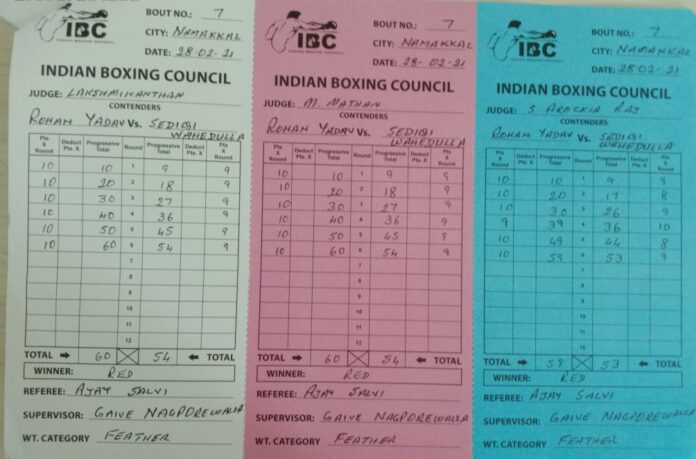 IBC
INDIAN BOXING COUNCIL
BOUT NO.: 7
CITY: NAMAKKAL
DATE: 28-02-21
INDIAN BOXING COUNCIL
JUDGE: LAKSHMIKANTHAN
CONTENDERS
ROHAN YADAV Vs. SEDIQI WAHEDULLA
Pts X Round Deduct Pts. X Progressive Total Round Progressive Total Deduct Pts. X Pts X Round
10 10 1 9 9
10 20 2 18 9
10 30 3 27 9
10 40 4 36 9
10 50 5 45 9
10 60 6 54 9
7
8
9
10
11
12
TOTAL 60 54 TOTAL
WINNER: RED
REFEREE: AJAY SALVI
SUPERVISOR: GAIVE NAGPOREWALLA
WT. CATEGORY FEATHER
IBC
INDIAN BOXING COUNCIL
BOUT NO.: 7
CITY: NAMAKKAL
DATE: 28-02-21
INDIAN BOXING COUNCIL
JUDGE: M. NATHAN
CONTENDERS
ROHAN YADAV Vs. SEDIQI WAHEDULLA
Pts X Round Deduct Pts. X Progressive Total Round Progressive Total Deduct Pts. X Pts X Round
10 10 1 9 9
10 20 2 18 9
10 30 3 27 9
10 40 4 36 9
10 50 5 45 9
10 60 6 54 9
7
8
9
10
11
12
TOTAL 60 54 TOTAL
WINNER: RED
REFEREE: AJAY SALVI
SUPERVISOR: GAIVE NAGPOREWALLA
WT. CATEGORY FEATHER
IBC
INDIAN BOXING COUNCIL
BOUT NO.: 7
CITY: NAMAKKAL
DATE: 28-02-21
INDIAN BOXING COUNCIL
JUDGE: S AROCKIA RAJ
CONTENDERS
ROHAN YADAV Vs. SEDIQI WAHEDULLA
Pts X Round Deduct Pts. X Progressive Total Round Progressive Total Deduct Pts. X Pts X Round
10 10 1 9 9
10 20 2 17 8
10 30 3 26 9
9 39 4 36 10
10 49 5 44 8
10 59 6 53 9
7
8
9
10
11
12
TOTAL 59 53 TOTAL
WINNER: RED
REFEREE: AJAY SALVI
SUPERVISOR: GAIVE NAGPOREWALLA
WT. CATEGORY FEATHER